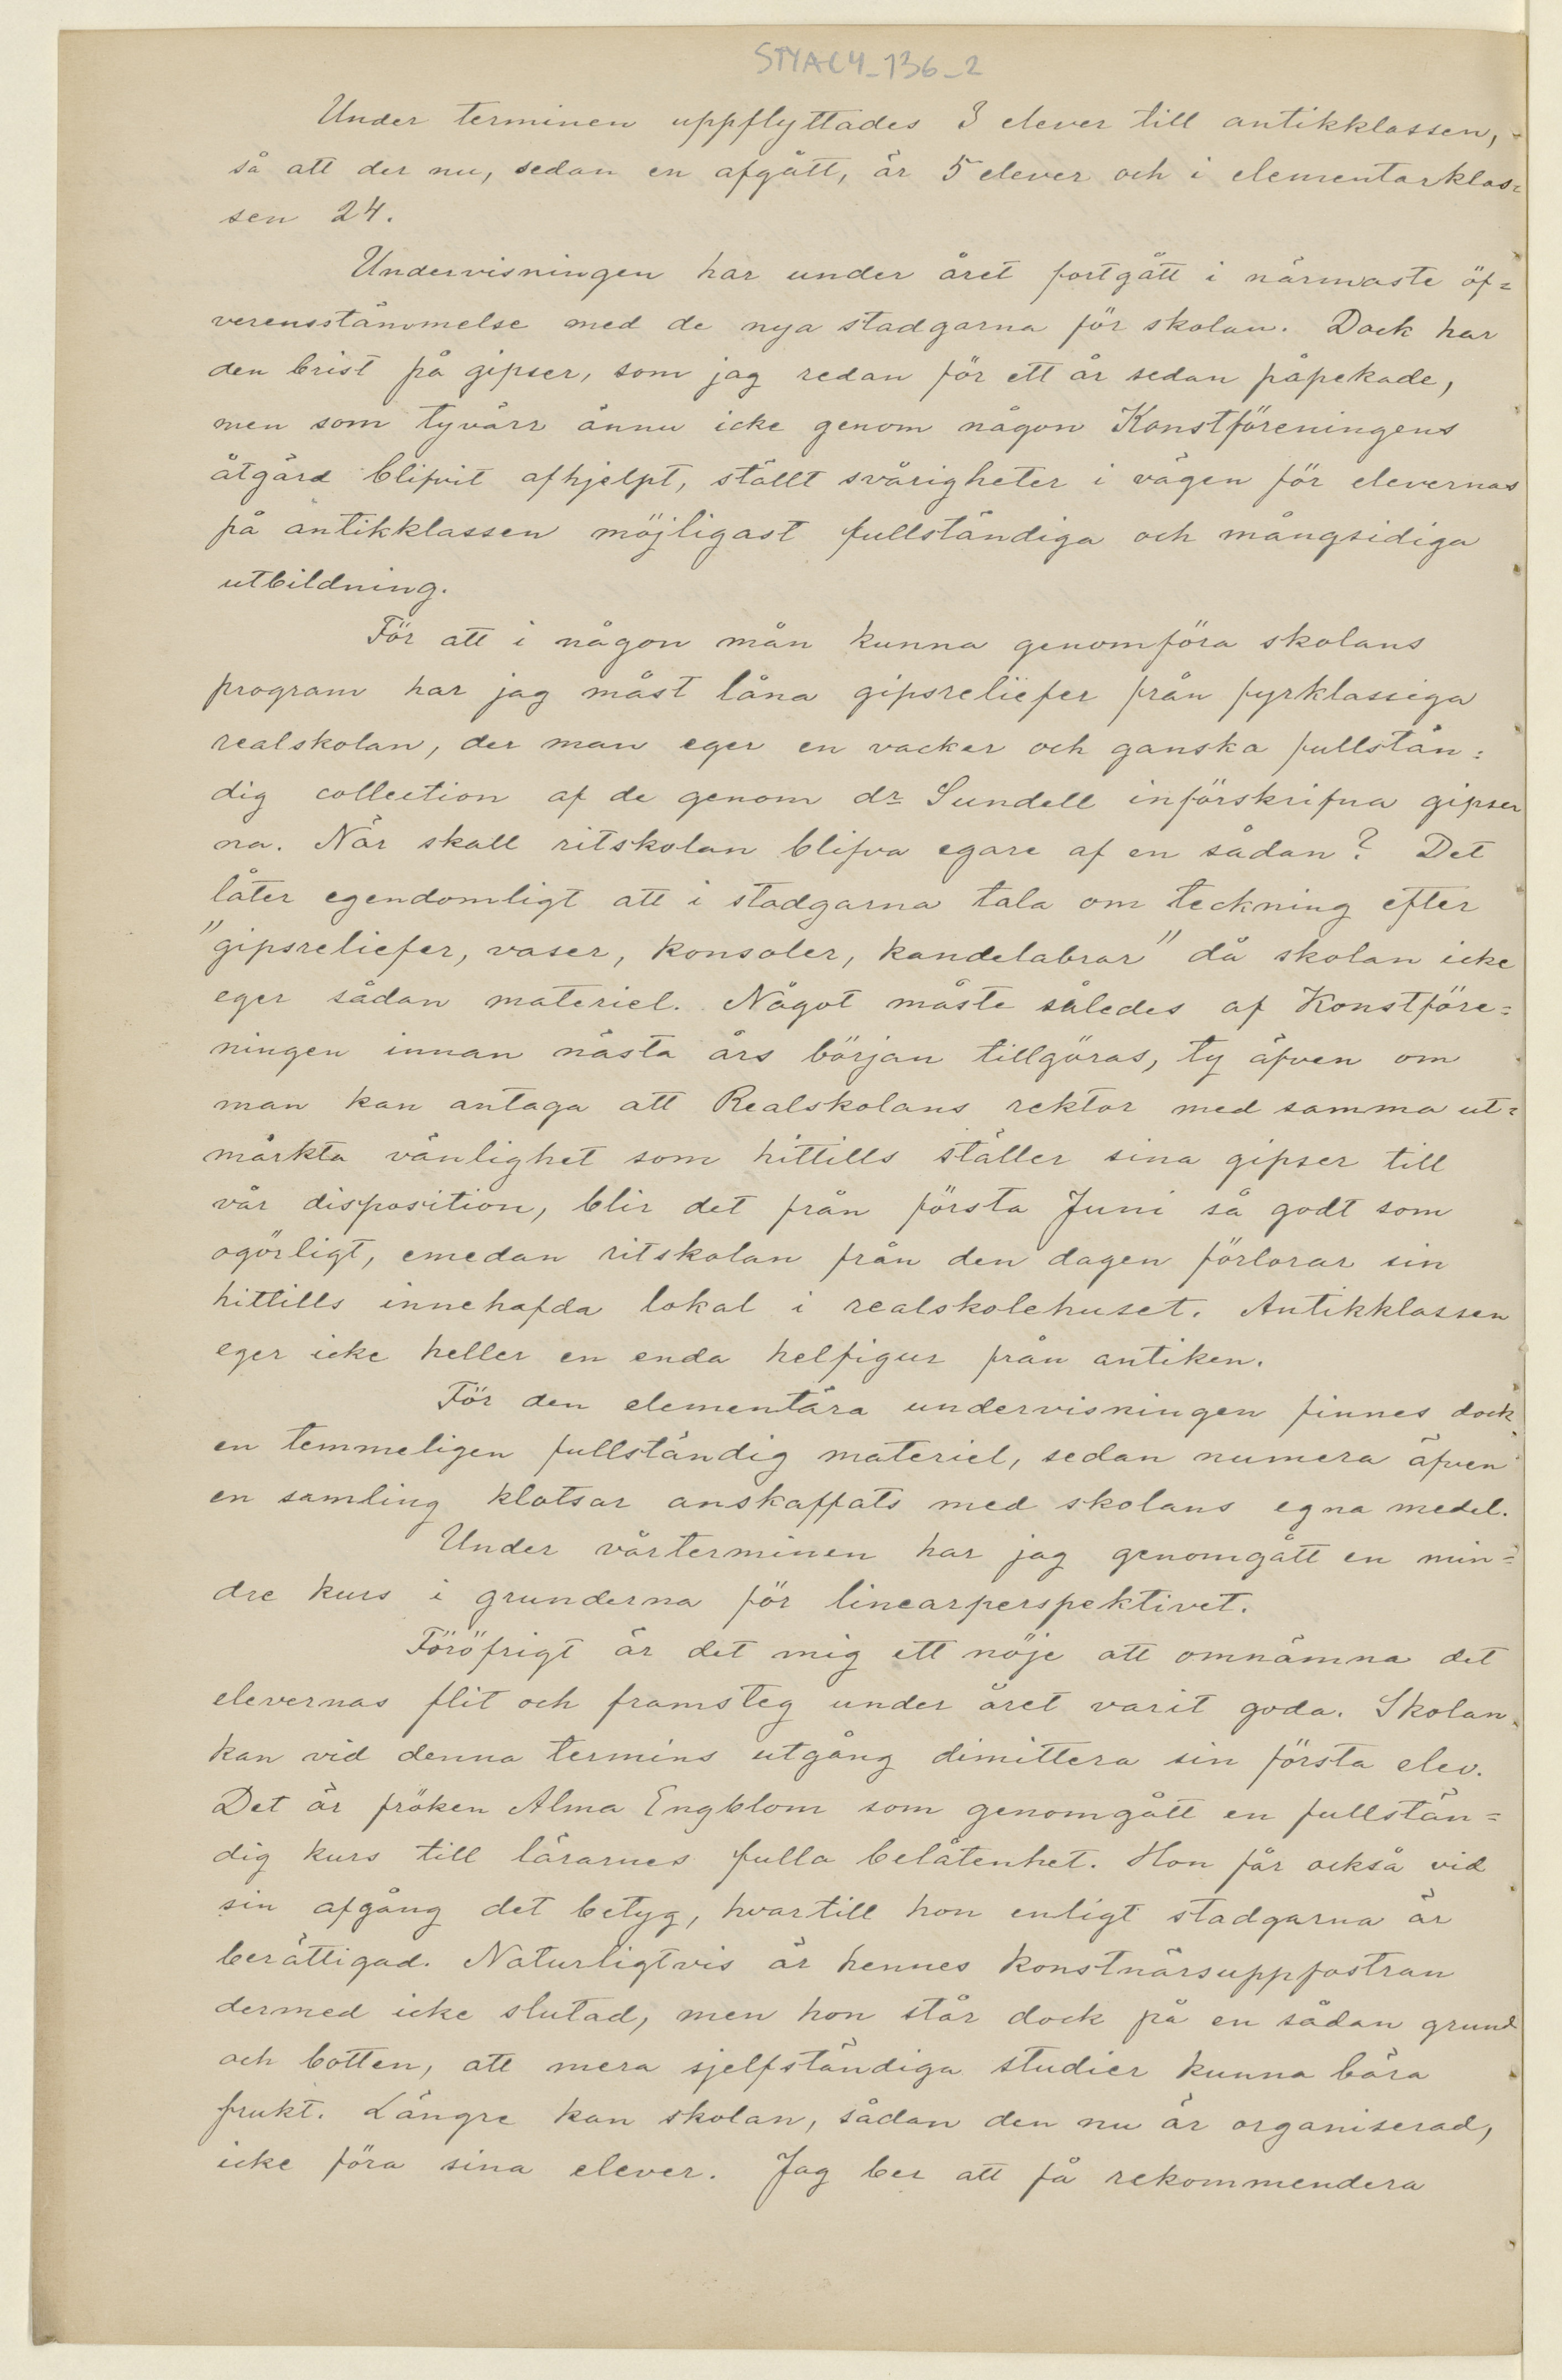 STYAC4_136_2
Under terminen uppflyttades 3 elever till antikklassen,
så att der nu, sedan en afgått, är 5 elever och i elementarklas=
sen 24.
Undervisningen har under året fortgått i närmaste öf=
verensstämmelse med de nya stadgarna för skolan. Dock har
den brist på gipser, som jag redan för ett år sedan påpekade,
men som tyvärr ännu icke genom någon Konstföreningens
åtgärd blifvit afhjelpt, ställt svårigheter i vägen för elevernas
på antikklassen möjligast fullständiga och mångsidiga
utbildning.
För att i någon mån kunna genomföra skolans
program har jag måst låna gipsreliefer från fyrklassiga
realskolan, der man eger en vacker och ganska fullstän=
dig collection af de genom dr Sundell införskrifna gipser
na. När skall ritskolan blifva egare af en sådan? Det
låter egendomligt att i stadgarna tala om teckning efter
"gipsreliefer, vaser, konsoler, kandelabrar" då skolan icke
eger sådan materiel. Något måste således af Konstföre=
ningen innan nästa års början tillgöras, ty äfven om
man kan antaga att Realskolans rektor med samma ut=
märkta vänlighet som hittills ställer sina gipser till
vår disposition, blir det från första Juni så godt som
ogörligt, emedan ritskolan från den dagen förlorar sin
hittills innehafda lokal i realskolehuset. Antikklassen
eger icke heller en enda helfigur från antiken.
För den elementära undervisningen finnes dock
en temmeligen fullständig materiel, sedan numera äfven
en samling klotsar anskaffats med skolans egna medel.
Under vårterminen har jag genomgått en min=
dre kurs i grunderna för linearperspektivet.
Föröfrigt är det mig ett nöje att omnämna det
elevernas flit och framsteg under året varit goda. Skolan
kan vid denna termins utgång dimittera sin första elev.
Det är fröken Alma Engblom som genomgått en fullstän=
dig kurs till lärarnes fulla belåtenhet. Hon får också vid
sin afgång det betyg, hvartill hon enligt stadgarna är
berättigad. Naturligtvis är hennes konstnärsuppfostran
dermed icke slutad, men hon står dock på en sådan grund
och botten, att mera sjelfständiga studier kunna bära
frukt. Längre kan skolan, sådan den nu är organiserad,
icke föra sina elever. Jag ber att få rekommendera